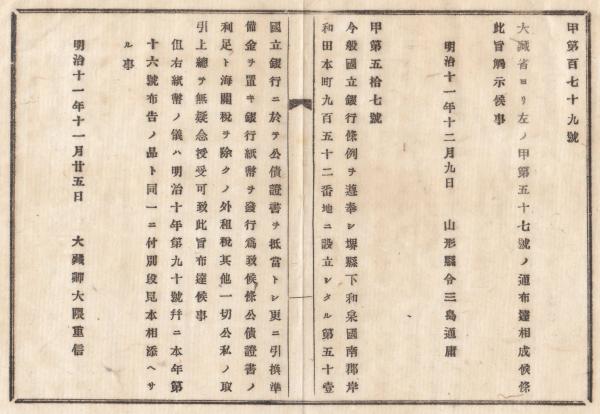 甲第百七十九號
大藏省ヨリ左ノ甲第五十七號ノ通布達相成候條
此旨觸示候事
明治十一年十二月九日　山形縣令三島通庸
甲第五拾七號
今般國立銀行條例ヲ遵奉シ堺縣下和泉國南郡岸
和田本町九百五十二番地ニ設立シタル第五十壹
國立銀行ニ於テ公債證書ヲ抵當トシ更ニ引換準
備金ヲ置キ銀行紙幣ヲ發行爲致候條公債證書ノ
利足ト海關稅ヲ除クノ外租稅其他一切公私ノ取
引上總テ無疑念授受可致此旨布達候事
但右紙幣ノ儀ハ明治十年第九十號幷ニ本年第
十六號布告ノ品ト同一ニ付別段見本相添ヘサ
ル事
明治十一年十一月廿五日　大藏卿大隈重信